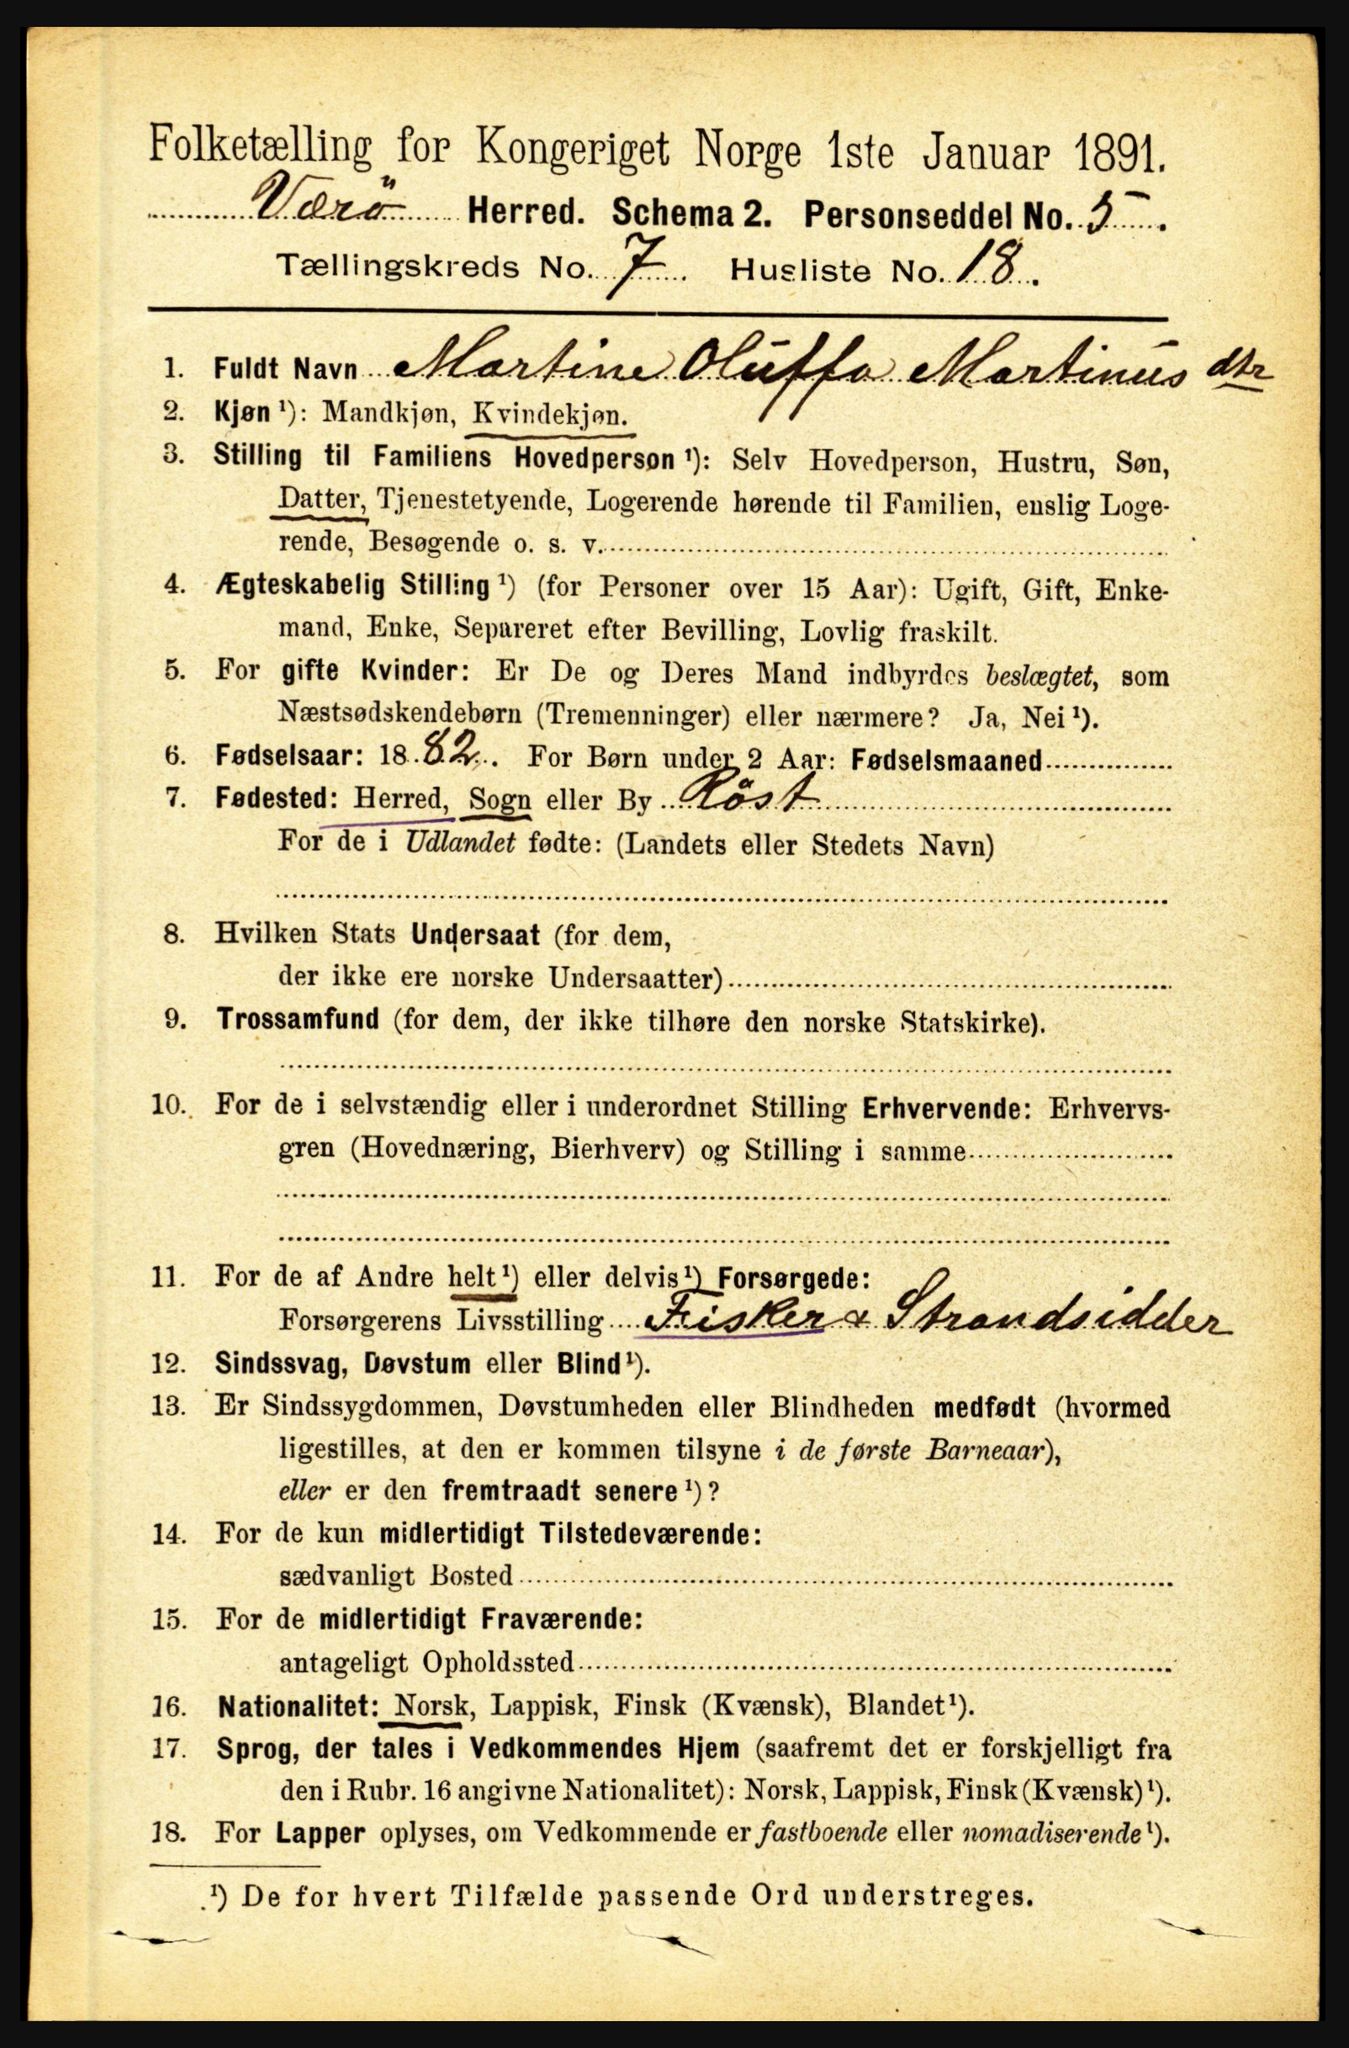 Folketælling for Kongeriget Norge 1ste Januar 1891.
Værö Herred. Schema 2. Personseddel No. 5.
Tællingskreds No. 7. Husliste No. 18.
1. Fuldt Navn Martine Oluffa Martinus dtr
2. Kjøn ¹): Mandkjøn, Kvindekjøn.
3. Stilling til Familiens Hovedperson ¹): Selv Hovedperson, Hustru, Søn,
Datter, Tjenestetyende, Logerende hørende til Familien, enslig Loge-
rende, Besøgende o. s. v.
4. Ægteskabelig Stilling ¹) (for Personer over 15 Aar): Ugift, Gift, Enke-
mand, Enke, Separeret efter Bevilling, Lovlig fraskilt.
5. For gifte Kvinder: Er De og Deres Mand indbyrdes beslægtet, som
Næstsødskendebørn (Tremenninger) eller nærmere? Ja, Nei ¹).
6. Fødselsaar: 1882. For Børn under 2 Aar: Fødselsmaaned
7. Fødested: Herred, Sogn eller By Röst
For de i Udlandet fødte: (Landets eller Stedets Navn)
8. Hvilken Stats Undersaat (for dem,
der ikke ere norske Undersaatter)
9. Trossamfund (for dem, der ikke tilhøre den norske Statskirke).
10. For de i selvstændig eller i underordnet Stilling Erhvervende: Erhvervs-
gren (Hovednæring, Bierhverv) og Stilling i samme
11. For de af Andre helt ¹) eller delvis ¹) Forsørgede:
Forsørgerens Livsstilling Fisker & Strandsidder
12. Sindssvag, Døvstum eller Blind ¹).
13. Er Sindssygdommen, Døvstumheden eller Blindheden medfødt (hvormed
ligestilles, at den er kommen tilsyne i de første Barneaar),
eller er den fremtraadt senere ¹)?
14. For de kun midlertidigt Tilstedeværende:
sædvanligt Bosted
15. For de midlertidigt Fraværende:
antageligt Opholdssted
16. Nationalitet: Norsk, Lappisk, Finsk (Kvænsk), Blandet ¹).
17. Sprog, der tales i Vedkommendes Hjem (saafremt det er forskjelligt fra
den i Rubr. 16 angivne Nationalitet): Norsk, Lappisk, Finsk (Kvænsk) ¹).
18. For Lapper oplyses, om Vedkommende er fastboende eller nomadiserende ¹).
¹) De for hvert Tilfælde passende Ord understreges.